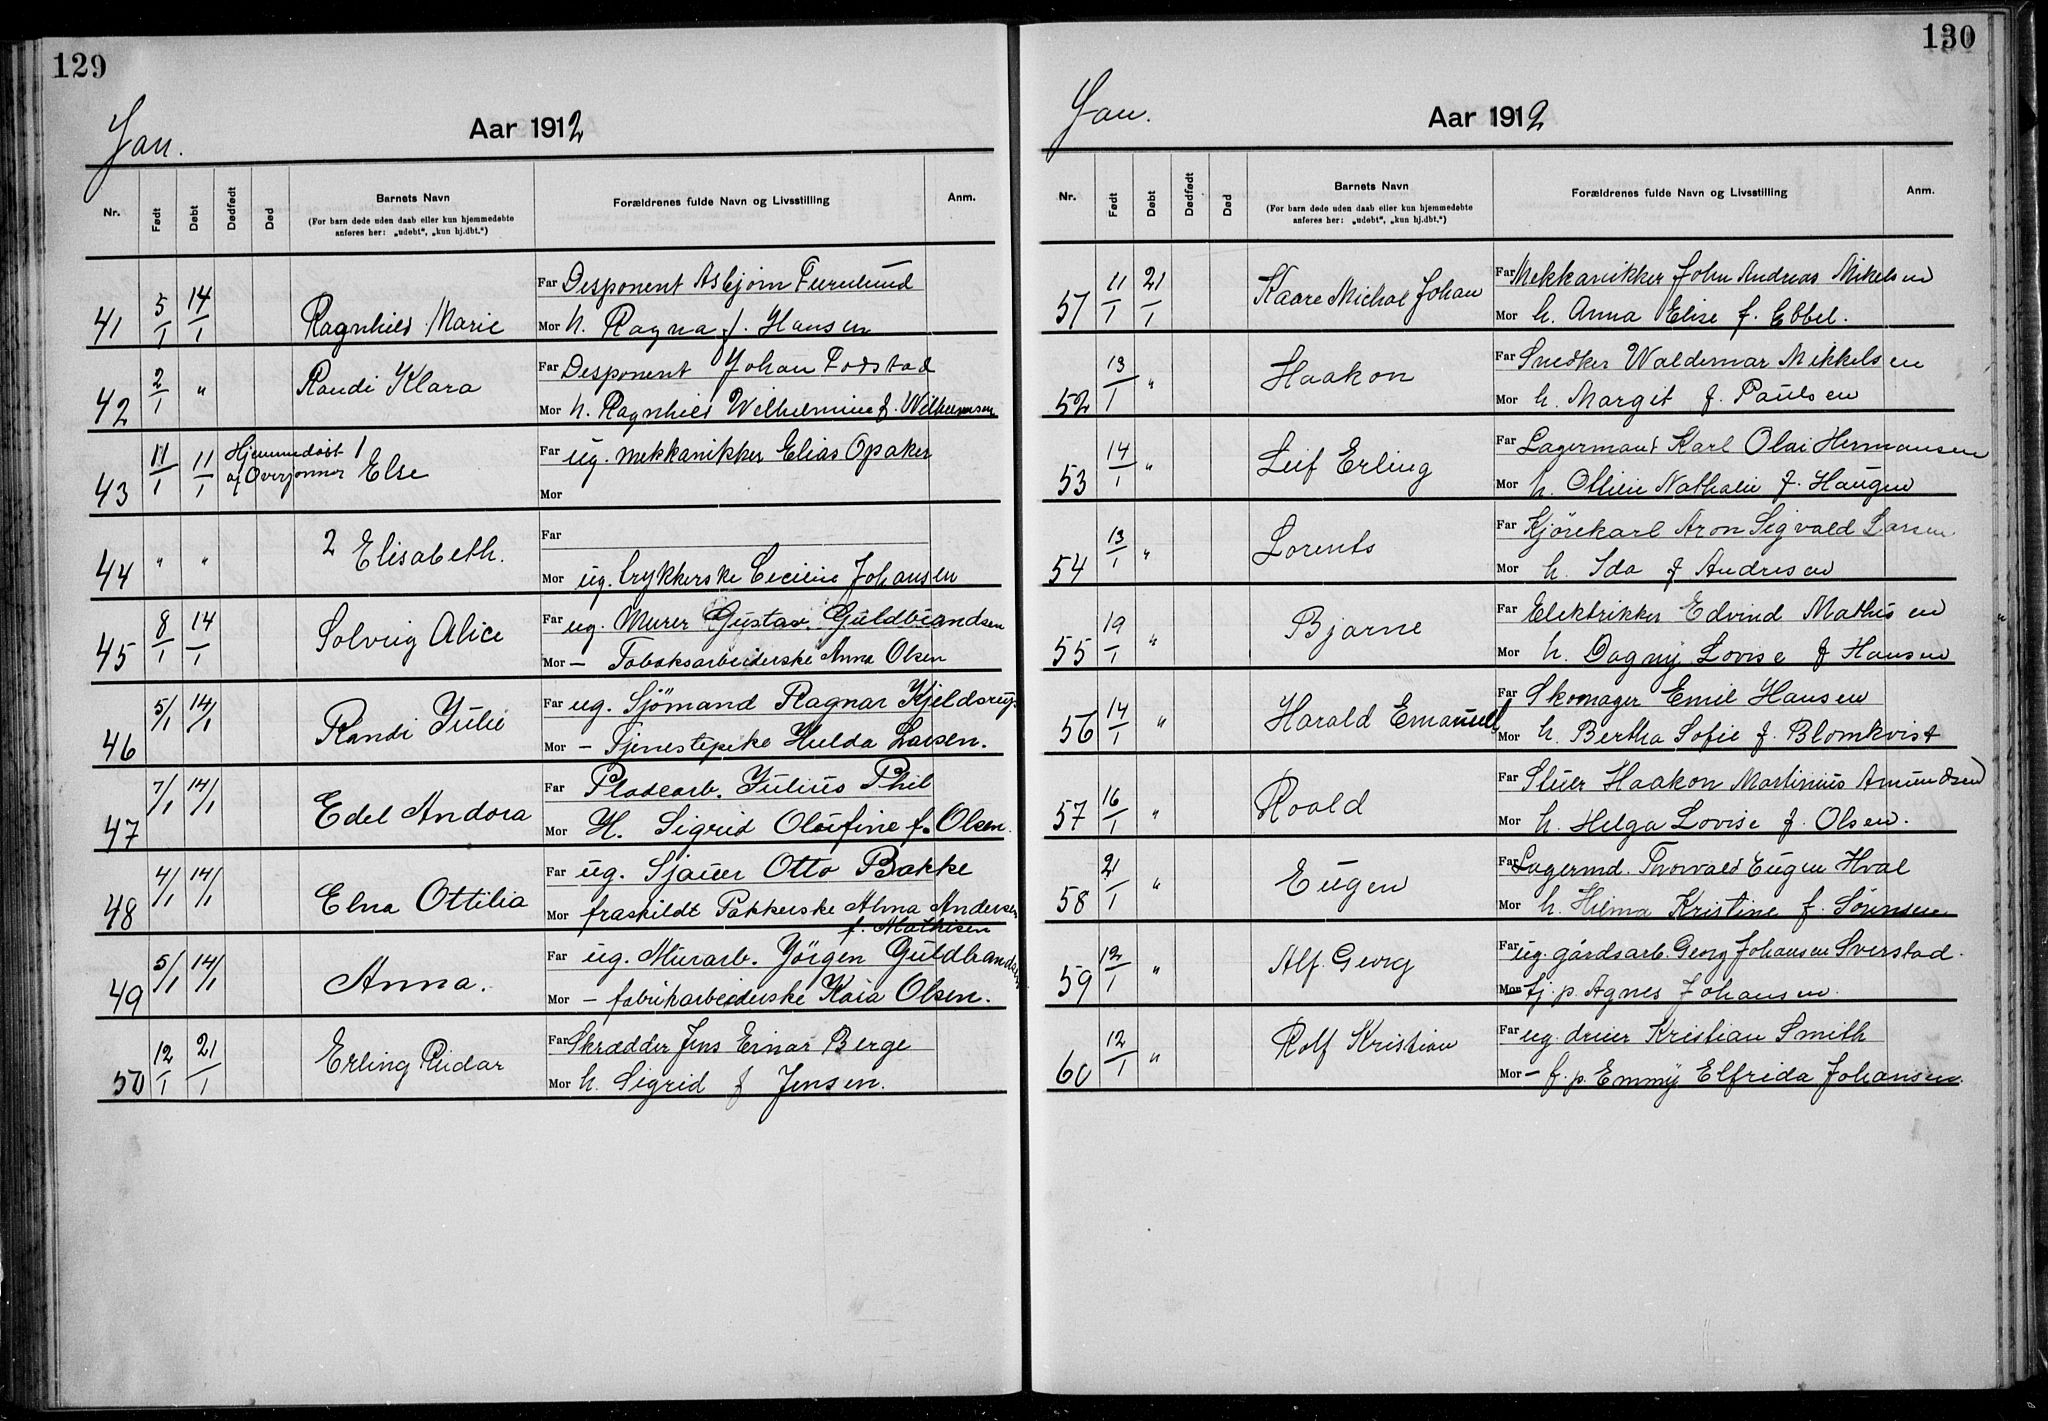 129
Jan.
Aar 1912
Nr. Født Døbt Dødfødt Død Barnets Navn Forældrenes fulde Navn og Livsstilling Anm.
(For barn døde uden daab eller kun hjemmedøbte
anføres her: „udøbt“, „kun hj.dbt.“)
Far Desponent Asbjørn
41 5/1 14/1 Ragnhild Marie Mor h. Ragna f. Hansen
Far Desponent Johan Fodstad
42 2/1 " Randi Klara Mor h. Ragnhild Wilhelmine f. Wilhelmsen
Hjemmedøbt 1 Far ug. mekkanikker Elias Opaker
43 11/1 11/1 af Else Mor
Far
44 " " 2 Elisabeth. Mor ug. Cecilie Johansen
Far ug. Murer Gustav Guldbrandsen
45 8/1 14/1 Solveig Alice Mor — Tobaksarbeiderske Anna Olsen
Far ug. Sjömand Ragnar Kjeldsrup
46 5/1 14/1 Randi Julie Mor — Tjenestepike Hulda Larsen.
Far Pladearb. Julius Phil
47 7/1 14/1 Edel Andora Mor H. Sigrid f. Olsen.
Far ug. Sjauer Otto Bakke
48 4/1 14/1 Elna Ottilia Mor fraskildt Pakkerske Alma Andersen
f. Mathisen
Far ug. Murarb. Jörgen Guldbrandsen
49 5/1 14/1 Anna. Mor — fabrikarbeiderske Kaia Olsen.
Far Skrædder Jens Einar Berge
50 12/1 21/1 Erling Reidar Mor h. Sigrid f Jensen.
130
Jan.
Aar 1912
Nr. Født Døbt Dødfødt Død Barnets Navn Forældrenes fulde Navn og Livsstilling Anm.
(For barn døde uden daab eller kun hjemmedøbte
anføres her: „udøbt“, „kun hj.dbt.“)
Far Mekkanikker John Andreas Mikelsen
51 11/1 21/1 Kaare Michal Johan Mor h. Anna Elise f. Ebbel.
Far Snedker Waldemar Mikkelsen
52 13/1 " Haakon Mor h. Margit f. Paulsen
Far Lagermand Karl Olai Hermansen
53 14/1 " Leif Erling Mor h. Ottilie Nathalie f. Haugen
Far Kjörekarl Aron Sigvald Larsen
54 13/1 " Lorents Mor h. Ida f Andresen
Far Elektrikker Edvind Mathisen
55 19/1 " Bjarne Mor h. Dagny Lovise f Hansen
Far Skomager Emil Hansen
56 14/1 " Harald Emanuel Mor h. Bertha Sofie f. Blomkvist
Far Haakon Martinius Amundsen
57 16/1 " Roald Mor h. Helga Lovise f. Olsen.
Far Lagermd. Thorvald Eugen Hval
58 21/1 " Eugen Mor h. Hilma Kristine f. Sørensen
Far ug. gårdsarb. Georg Johansen Sverstad.
59 12/1 " Alf Georg Mor — tj. p. Agnes Johansen.
Far ug. dreier Kristian Smith
60 12/1 " Rolf Kristian Mor — f. p. Emmy Elfrida Johansen.